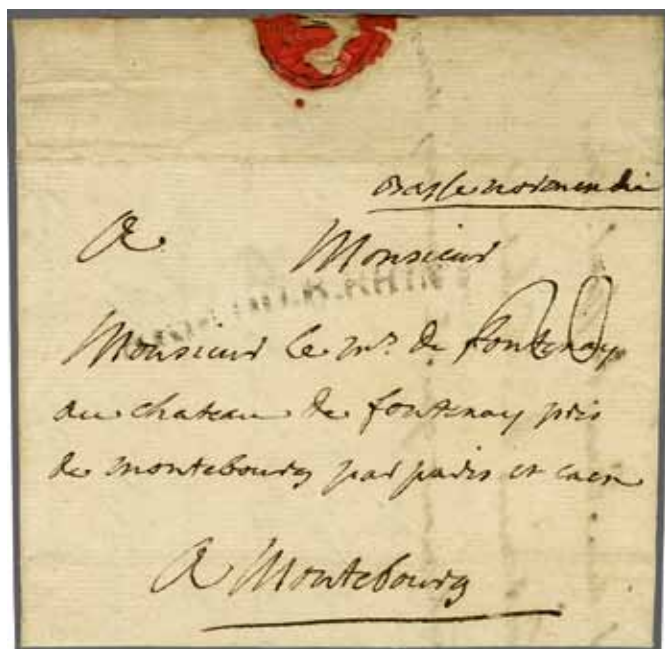 Basse normandie
A Monsieur
Monsieur le mis de fontenay
au chateau de fontenay près
de montebourg par paris et caen
A Montebourg